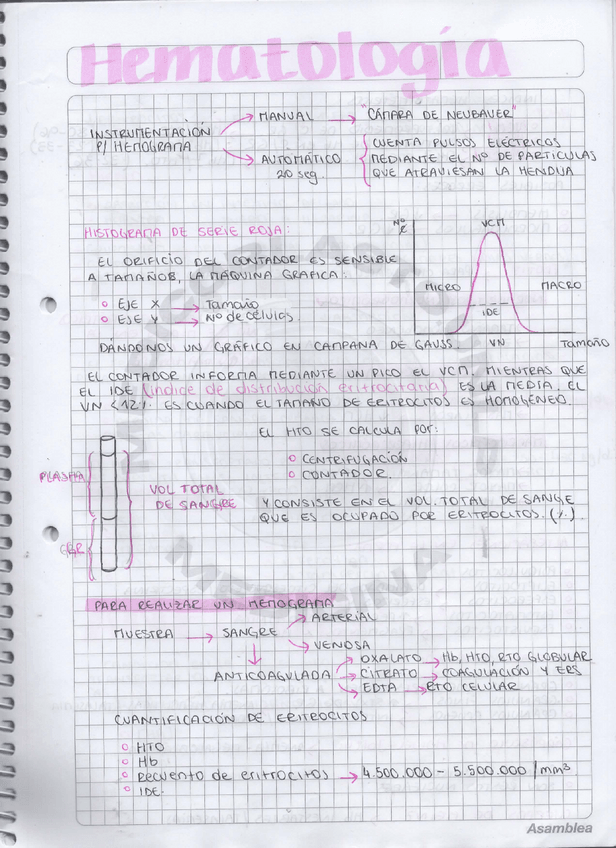 Hematología
MANUAL → "CÁMARA DE NEUBAUER"
INSTRUMENTACIÓN
P/ HEMOGRAMA
AUTOMÁTICO
20 seg.
CUENTA PULSOS ELÉCTRICOS
MEDIANTE EL Nº DE PARTÍCULAS
QUE ATRAVIESAN LA HENDIJA
HISTOGRAMA DE SERIE ROJA:
EL ORIFICIO DEL CONTADOR ES SENSIBLE
A TAMAÑOS, LA MÁQUINA GRAFICA:
EJE X → Tamaño
EJE Y → Nº de células.
Nº
VCM
MICRO
MACRO
IDE
VN
Tamaño
DÁNDONOS UN GRÁFICO EN CAMPANA DE GAUSS.
EL CONTADOR INFORMA MEDIANTE UN PICO EL VCM, MIENTRAS QUE
EL IDE (índice de distribución eritrocitaria) ES LA MEDIA. EL
VN <12%. ES CUANDO EL TAMAÑO DE ERITROCITOS ES HOMOGÉNEO.
EL HTO SE CALCULA POR:
CENTRIFUGACIÓN
CONTADOR.
PLASMA
VOL TOTAL
DE SANGRE
Y CONSISTE EN EL VOL. TOTAL DE SANGE
QUE ES OCUPADO POR ERITROCITOS. (%)
PARA REALIZAR UN HEMOGRAMA
ARTERIAL
MUESTRA → SANGRE
VENOSA
OXALATO → Hb, HTO, RTO GLOBULAR
ANTICOAGULADA → CITRATO → COAGULACIÓN Y ERS
EDTA → RTO CELULAR
CUANTIFICACIÓN DE ERITROCITOS
HTO
Hb
Recuento de eritrocitos → 4.500.000 - 5.500.000 /mm³
IDE.
Asamblea